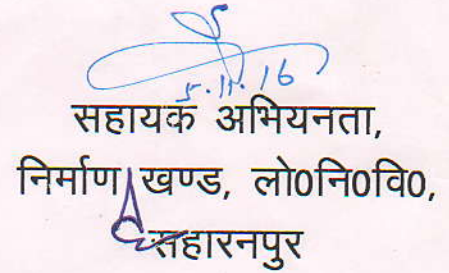 5.11.16
सहायक अभियनता,
निर्माण खण्ड, लो0नि0वि0,
सहारनपुर